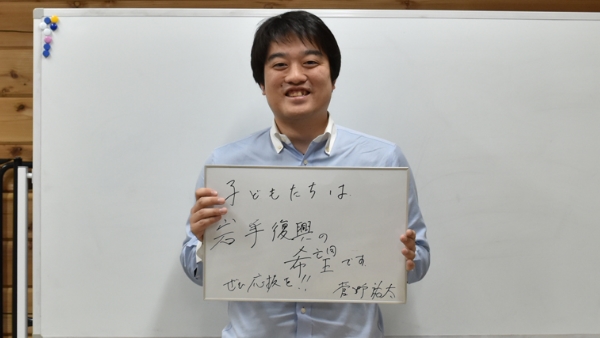 子どもたちは
岩手復興の
希望です
ぜひ応援を!! 菅野祐太